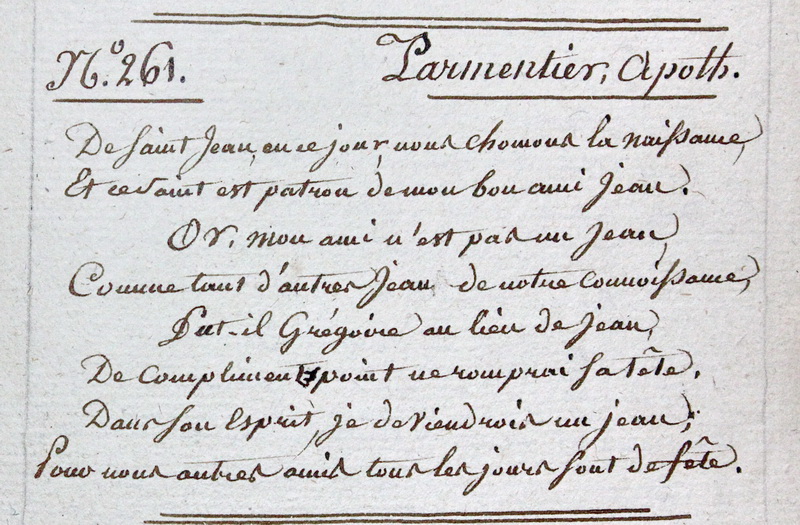 N.º 261.
Parmentier, Apoth.
De Saint Jean, en ce jour, nous chomons la naissance,
Et ce Saint est patron de mon bon ami Jean.
Or, mon ami n'est pas un Jean,
Comme tant d'autres Jean de notre connoissance,
Fut-il Grégoire au lieu de Jean,
De compliment point ne romprai sa tête.
Dans son Esprit, je deviendrois un jean;
Pour nous autres amis tous les jours sont de fête.